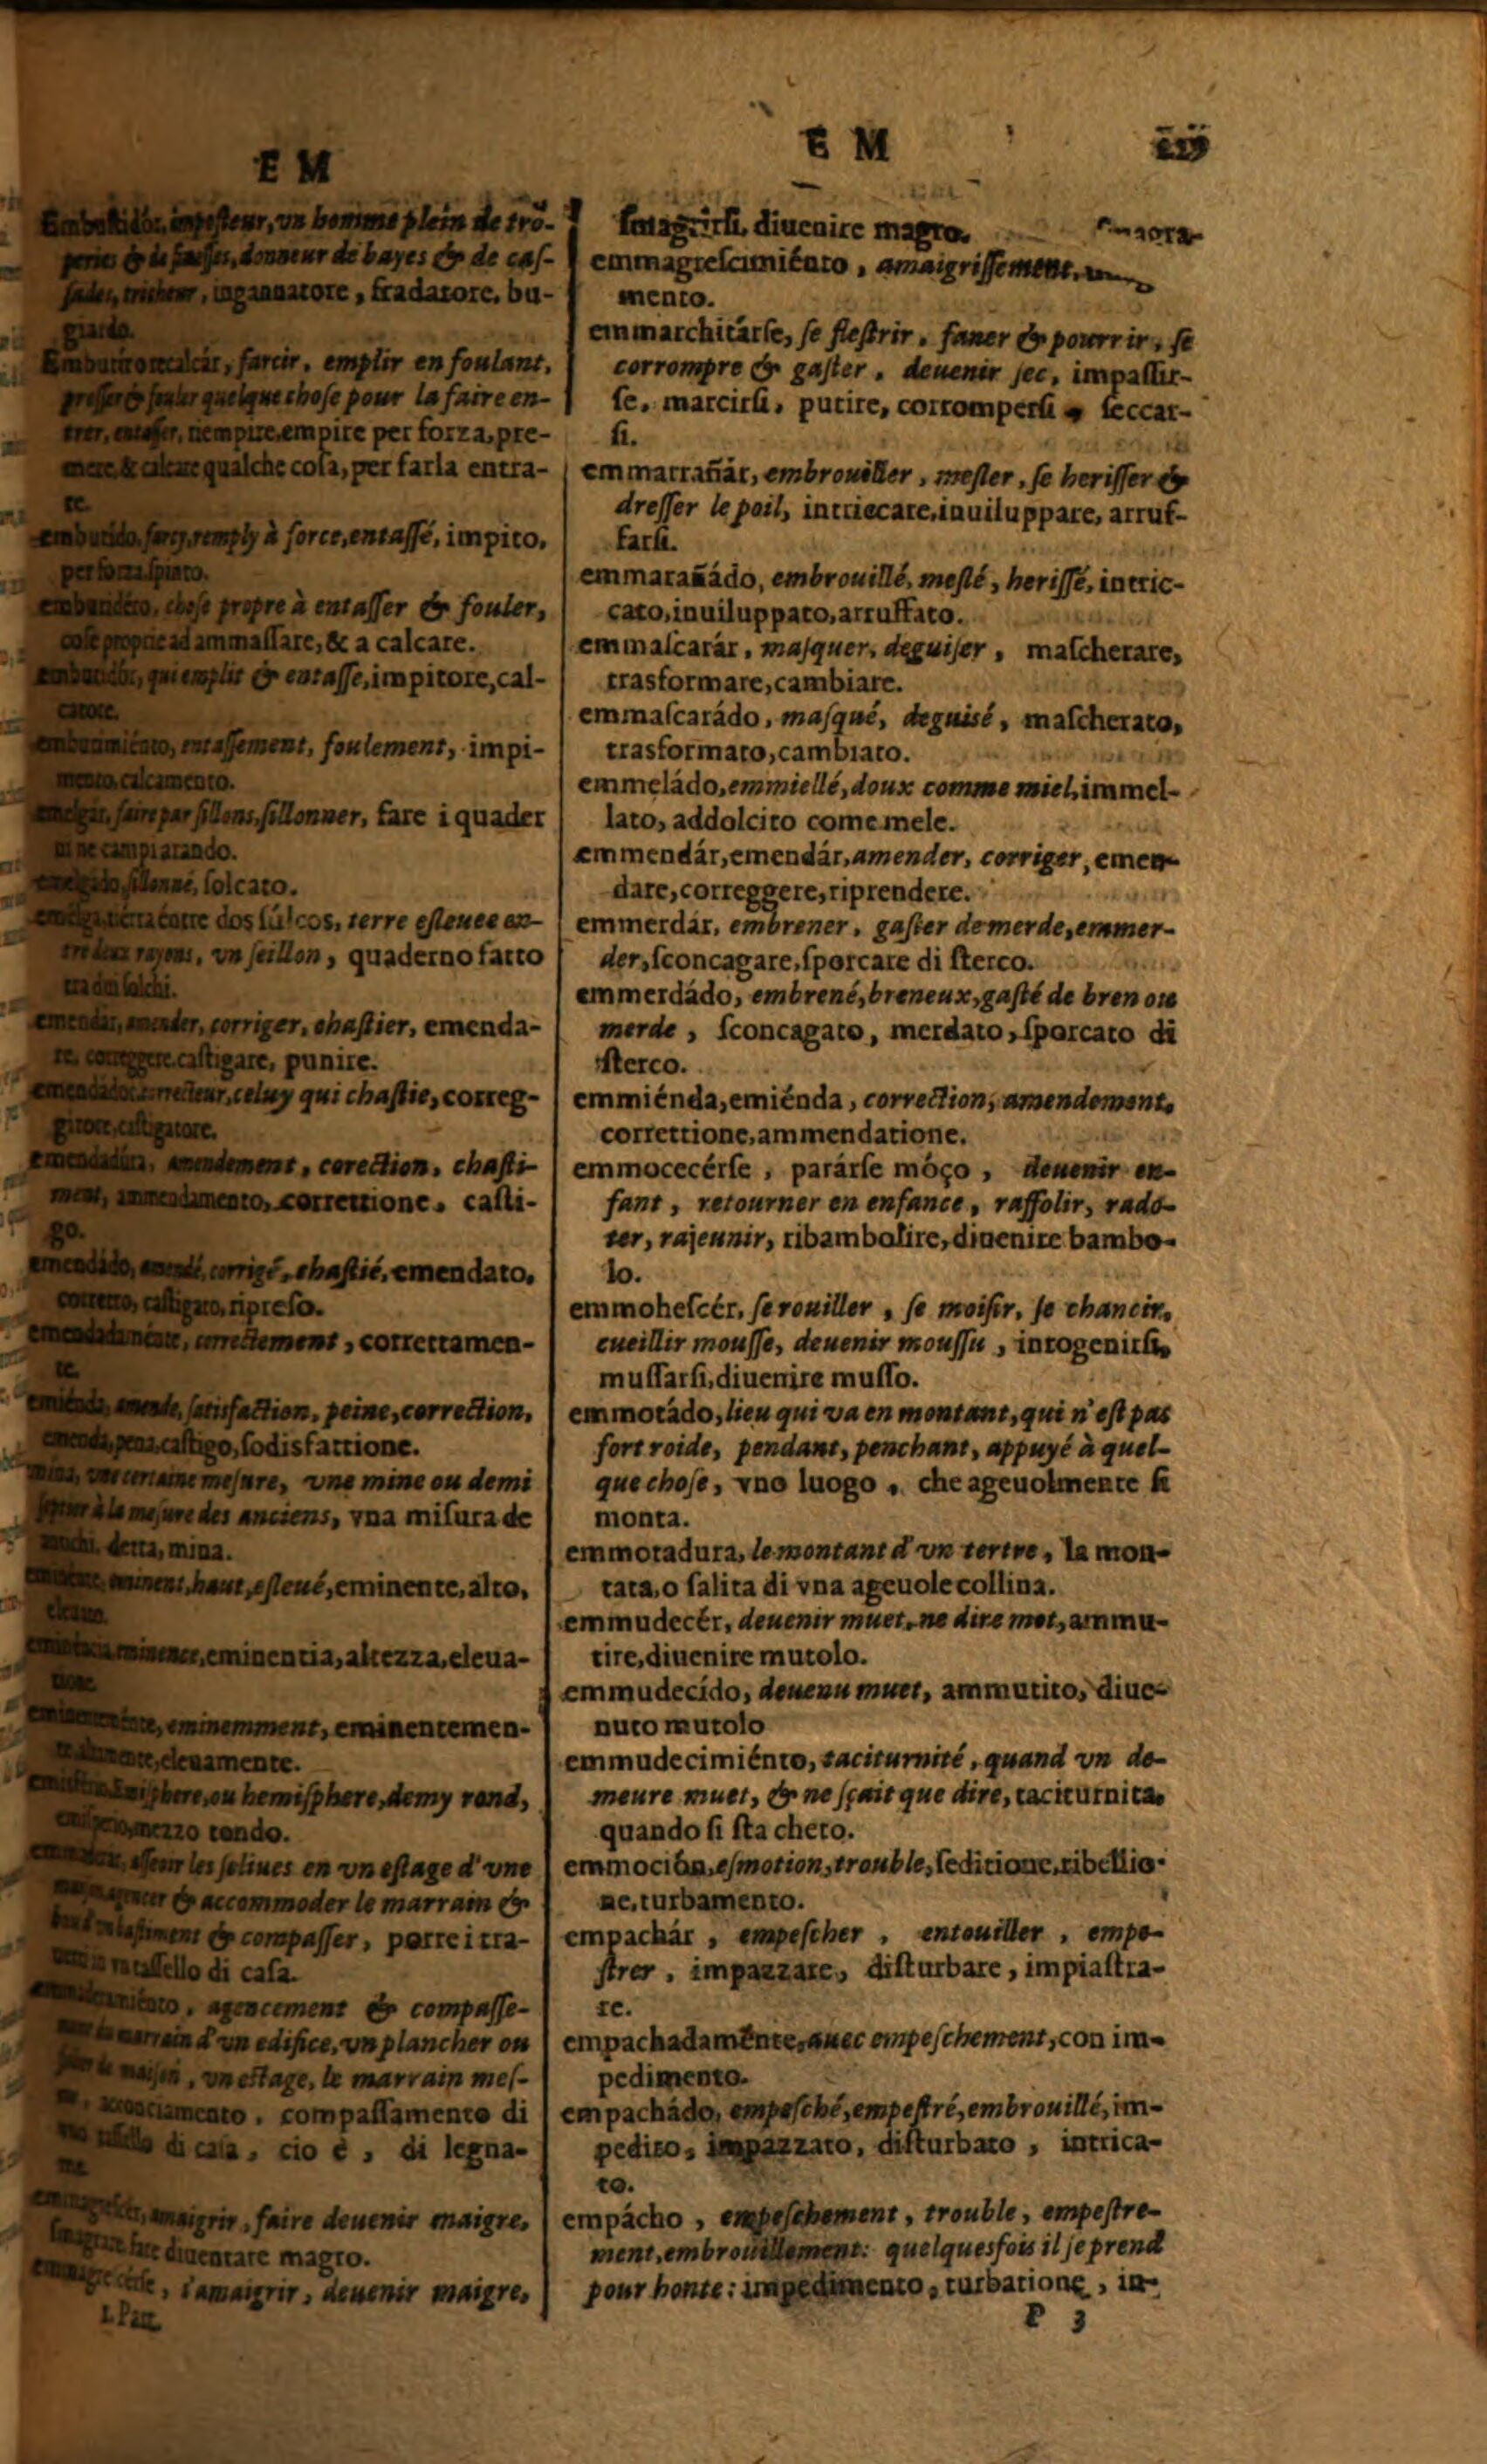 E M
Embustidór, imposteur, vn homme plein de trõ-
peries & de fausses, donneur de bayes & de cas-
sades, tricheur, ingannatore, fradatore, bu-
giardo.
farcir, emplir en foulant,
presser & fouler quelque chose pour la faire en-
trer, entasser, riempire, empire per forza, pre-
mere, & calcare qualche cosa, per farla entra-
re.
embutido, farcy, remply à force, entassé, impito,
per forza
chose propre à entasser & fouler,
cose proprie ad ammassare, & a calcare.
qui emplit & entasse, impitore, cal-
catore.
entassement, foulement, impi-
mento, calcamento.
emelgár, faire par sillons, sillonner, fare i quader
ni ne campi arando.
emelgádo, sillonné, solcato.
tierra éntre dos súlcos, terre esleuee en-
tre deux rayons, vn seillon, quaderno fatto
tra dui solchi.
emendár, amender, corriger, chastier, emenda-
re, correggere, castigare, punire.
emendadór, correcteur, celuy qui chastie, correg-
gitore, castigatore.
emendadúra, amendement, corection, chasti-
ment, ammendamento, correttione, casti-
go.
emendádo, amendé, corrigé, chastié, emendato,
corretto, castigato, ripreso.
correctement, correttamen-
te.
emiénda, amende, satisfaction, peine, correction,
emenda, pena, castigo, sodisfattione.
mina, vne certaine mesure, vne mine ou demi
septier à la mesure des anciens, vna misura de
detta, mina.
eminent, haut, esleué, eminente, alto,
eleuato.
eminence, eminentia, altezza, eleua-
tione.
eminemment, eminentemen-
te, eleuamente.
ou hemisphere, demy rond,
mezzo tondo.
asseoir les soliues en vn estage d'vne
& accommoder le marrain &
& compasser, porre i tra-
di casa.
agencement & compasse-
marrain d'vn edifice, vn plancher ou
maison, vn estage, le marrain mes-
compassamento di
di casa, cio è, di legna-
me.
amaigrir, faire deuenir maigre,
fare diuentare magro.
s'amaigrir, deuenir maigre,
I. Part.
E M
smagrirsi, diuenire magro.
emmagrescimiénto, amaigrissement,
mento.
emmarchitárse, se flestrir, faner & pourrir, se
corrompre & gaster, deuenir sec, impassir-
se, marcirsi, putire, corrompersi, seccar-
si.
emmarrañár, embrouiller, mesler, se herisser &
dresser le poil, intriecare, inuiluppare, arruf-
farsi.
emmarañádo, embrouillé, meslé, herissé, intric-
cato, inuiluppato, arruffato.
emmascarár, masquer, deguiser, mascherare,
trasformare, cambiare.
emmascarádo, masqué, deguisé, mascherato,
trasformato, cambiato.
emmeládo, emmiellé, doux comme miel, immel-
lato, addolcito come mele.
emmendár, emendár, amender, corriger, emen-
dare, correggere, riprendere.
emmerdár, embrener, gaster de merde, emmer-
der, sconcagare, sporcare di sterco.
emmerdádo, embrené, breneux, gasté de bren ou
merde, sconcagato, merdato, sporcato di
sterco.
emmiénda, emiénda, correction, amendement,
correttione, ammendatione.
emmocecérse, parárse móço, deuenir en-
fant, retourner en enfance, raffolir, rado-
ter, rajeunir, ribambolire, diuenire bambo-
lo.
emmohescér, se rouiller, se moisir, se chancir,
cueillir mousse, deuenir moussu, introgenirsi,
mussarsi, diuenire musso.
emmotádo, lieu qui va en montant, qui n'est pas
fort roide, pendant, penchant, appuyé à quel-
que chose, vno luogo, che ageuolmente si
monta.
emmotadura, le montant d'vn tertre, la mon-
tata, o salita di vna ageuole collina.
emmudecér, deuenir muet, ne dire mot, ammu-
tire, diuenire mutolo.
emmudecído, deuenu muet, ammutito, diue-
nuto mutolo
emmudecimiénto, taciturnité, quand vn de-
meure muet, & ne sçait que dire, taciturnita,
quando si sta cheto.
emmoción, esmotion, trouble, seditione, ribellio-
ne, turbamento.
empachár, empescher, entouiller, empe-
strer, impazzare, disturbare, impiastra-
re.
empachadaménte, auec empeschement, con im-
pedimento.
empachádo, empesché, empestré, embrouillé, im-
pedito, impazzato, disturbato, intrica-
to.
empácho, empeschement, trouble, empestre-
ment, embrouillement: quelquesfois il se prend
pour honte: impedimento, turbatione, in-
P 3